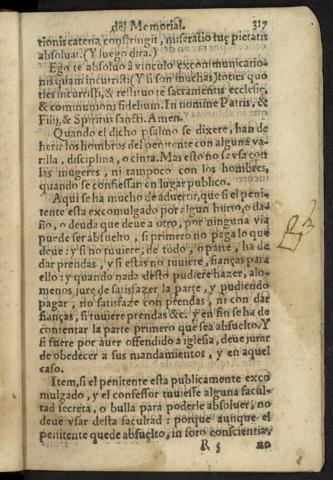 del Memorial. 317
tionis catena constringit, miseratio tuę pietatis
absoluat. (Y luego dira).
Ego te absoluo à vinculo excommunicatio-
nis quam incurristi (Y si son muchas) toties quo
ties incurristi, & restituo te sacramentis ecclesię,
& communioni fidelium. In nomine Patris, &
Filij, & Spiritus sancti. Amen.
Quando el dicho psalmo se dixere, han de
herir los hombros del penitente con alguna va-
rilla, disciplina, o cinta. Mas esto no se vsa con
las mugeres, ni tampoco con los hombres,
quando se confiessan en lugar publico.
Aqui se ha mucho de aduertir, que si el peni-
tente esta excomulgado por algun hurto, o da-
ño, o deuda que deue a otro, por ninguna via
puede ser absuelto, si primero no paga lo que
deue: y si no tuuiere, de todo, o parte, ha de
dar prendas, y si estas no tuuiere, fianças para
ello: y quando nada desto pudiere hazer, alo-
menos jure de satisfazer la parte, y pudiendo
pagar, no satisfaze con prendas, ni con dar
fianças, si tuuiere prendas &c. y en fin se ha de
contentar la parte primero que sea absuelto. Y
si fuere por auer offendido a iglesia, deue jurar
de obedecer a sus mandamientos, y en aquel
caso.
Item, si el penitente esta publicamente exco
mulgado, y el confessor tuuiesse alguna facul-
tad secreta, o bulla para poderle absoluer, no
deue vsar desta facultad: porque aunque el
penitente quede absuelto, in foro conscientiæ,
R 5 no